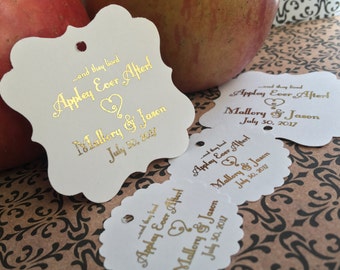 ...and they lived
Appley Ever After!
Mallory & Jason
July 30, 2017
...and they lived
Appley Ever After!
Mallory & Jason
July 30, 2017
...and they lived
Appley Ever After!
Mallory & Jason
July 30, 2017
...and they lived
Appley Ever After!
Mallory & Jason
July 30, 2017